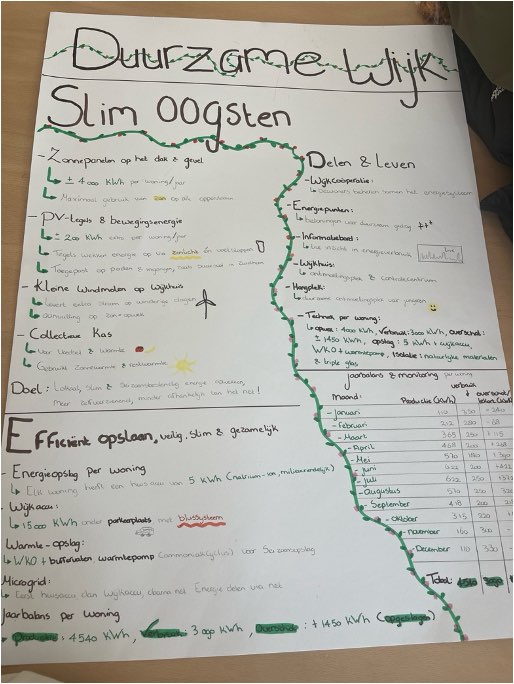 Duurzame Wijk
Slim Oogsten
- Zonnepanelen op het dak & gevel
↳ ± 4000 kWh per woning/jaar
↳ Maximaal gebruik van zon op alle oppervlakken
- PV-tegels & bewegingsenergie
↳ ± 200 kWh extra per woning/jaar
↳ Tegels wekken energie op via zonlicht én voetstappen
↳ Toegepast op paden & ingangen
- Kleine Windmolen op Wijkhuis
↳ Levert extra stroom op winderige dagen
↳ Aanvulling op zon-opwek
- Collectieve Kas
↳ Voor Voedsel & Warmte
↳ Gebruikt Zonnewarmte & restwarmte
Doel: Lokaal, Slim & Seizoensbestendig energie opwekken,
Meer zelfvoorzienend, minder afhankelijk van het net!
Efficiënt opslaan, veilig, slim & gezamelijk
- Energieopslag per woning
↳ Elke woning heeft een huisaccu van 5 kWh (natrium-ion, milieuvriendelijk)
- Wijkaccu:
↳ 15000 kWh onder parkeerplaats met blussysteem
- Warmte-opslag:
↳ WKO + buffervaten warmtepomp voor Seizoensopslag
Microgrid:
↳ Energie delen via net
Jaarbalans per Woning
Productie: 4540 kWh, Verbruik: 3000 kWh, Overschot: +1450 kWh (opgeslagen)
Delen & Leven
- Wijkcoöperatie:
↳ bewoners beheren samen het energiesysteem
- Energiepunten:
↳ beloningen voor duurzaam gedrag +++
- Informatiebord:
↳ Live inzicht in energieverbruik
- Wijkhuis:
↳ ontmoetingsplek & controlecentrum
- Hangplek:
↳ duurzame ontmoetingsplek voor jongeren
- Techniek per woning:
↳ opwek: 4000 kWh, verbruik: 3000 kWh, overschot:
± 1450 kWh, opslag: 5 kWh + wijkaccu,
WKO + warmtepomp, Isolatie: natuurlijke materialen
& triple glas
Jaarbalans & monitoring per woning
Maand: Productie (kWh) verbruik overschot/tekort (kWh)
- Januari 110 350 -240
- Februari 212 280 -68
- Maart 365 250 +115
- April 468 200 +268
- Mei 570 180 +390
- Juni 622 200 +422
- Juli 622 250
- Augustus 570 250
- September 418 200
- Oktober 315 220
- November 160 300
- December 110 330
Totaal: